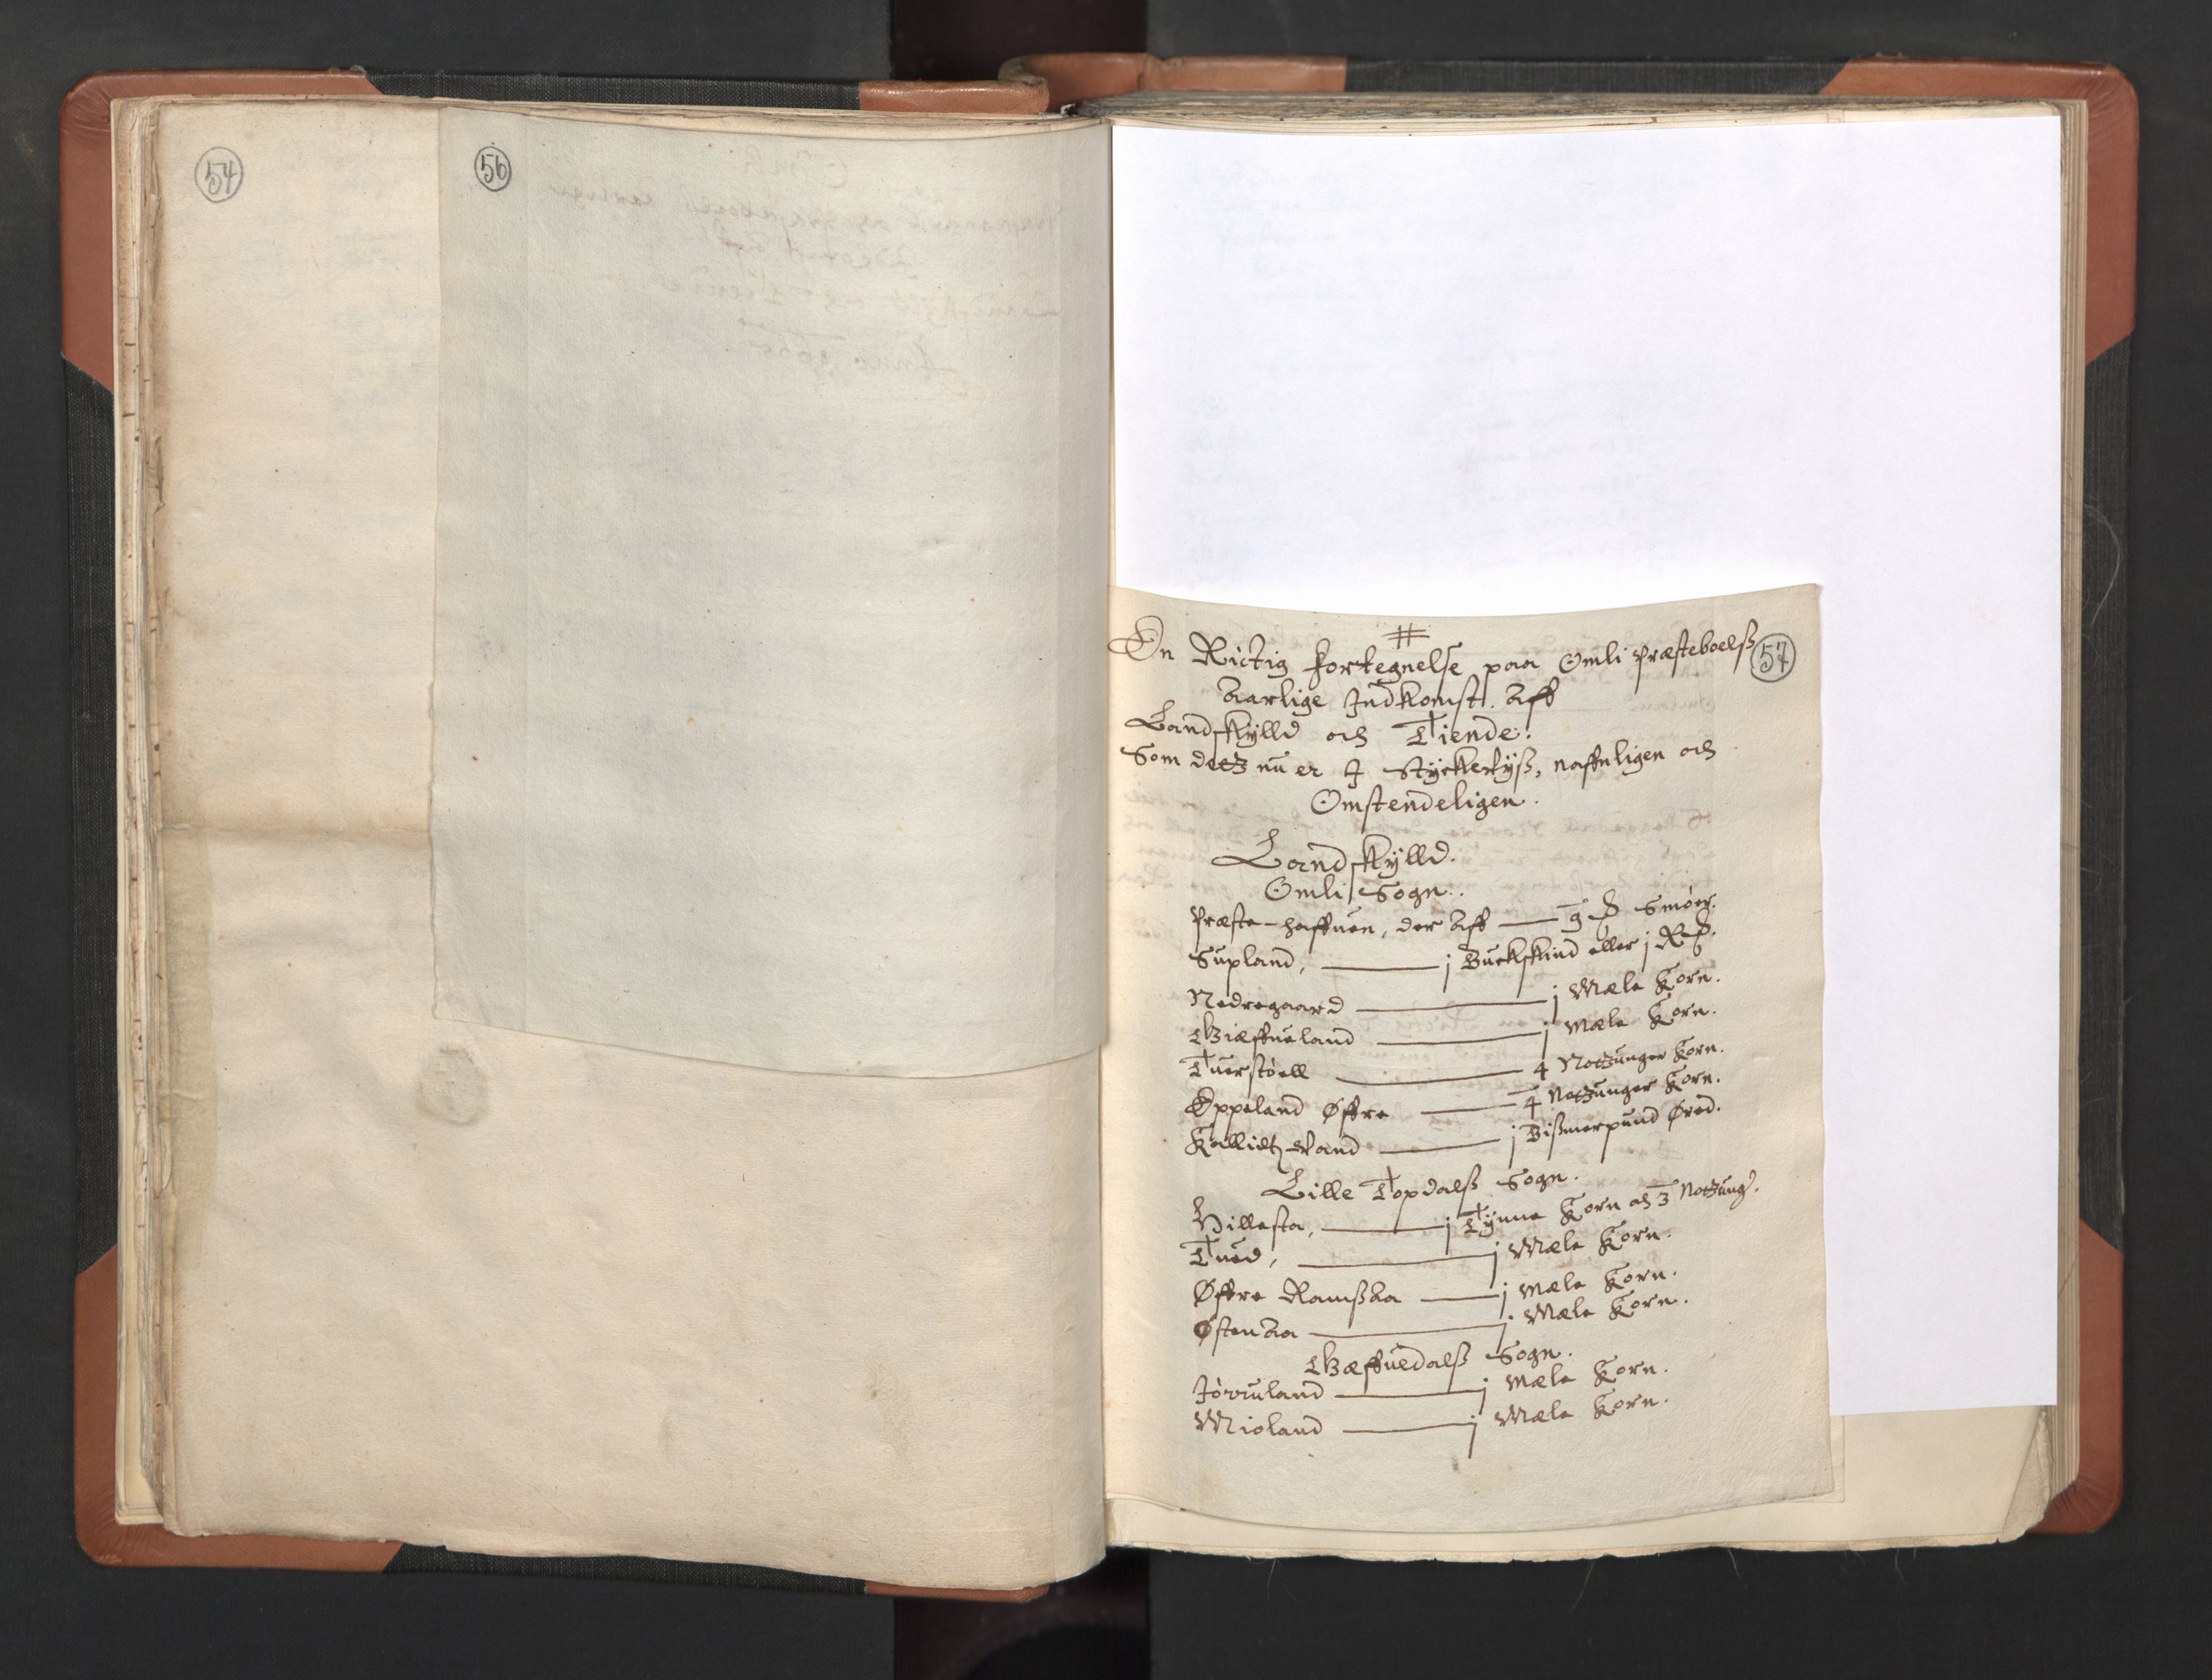 54
56
57
#
En Rictig fortegnelse paa Omli Præsteboelß
Aarlige Indkomst. Aff
Landskylld och Tiende:
Som detz nu er J Stÿckervÿß, naffnligen och
Omstendeligen.
Landskÿlld.
Omli Sogn.
Præste-haffuen, der Aff — 9 Smöer.
Supland, — j Buckskind eller j
Nedregaard — j Mæle Korn.
Giæffueland — j Mæle Korn.
Tuerstöell — 4 Notzunger Korn.
Eppeland Øffre — 4 Notzunger Korn.
— j Bißmerpund Øred.
Lille Topdalß Sogn.
Hillesta, — j Tÿnne Korn och 3 Notzung.
Tued, — j Mæle Korn.
Øffre Ramße — j Mæle Korn.
Østen Aa — j Mæle Korn.
Gæffuedalß Sogn.
Jörruland — j Mæle Korn.
Mioland — j Mæle Korn.